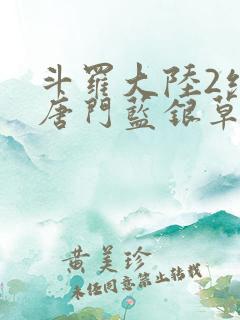 斗羅大陸2絕
唐門藍銀草
黃美珍
未經同意禁止轉載